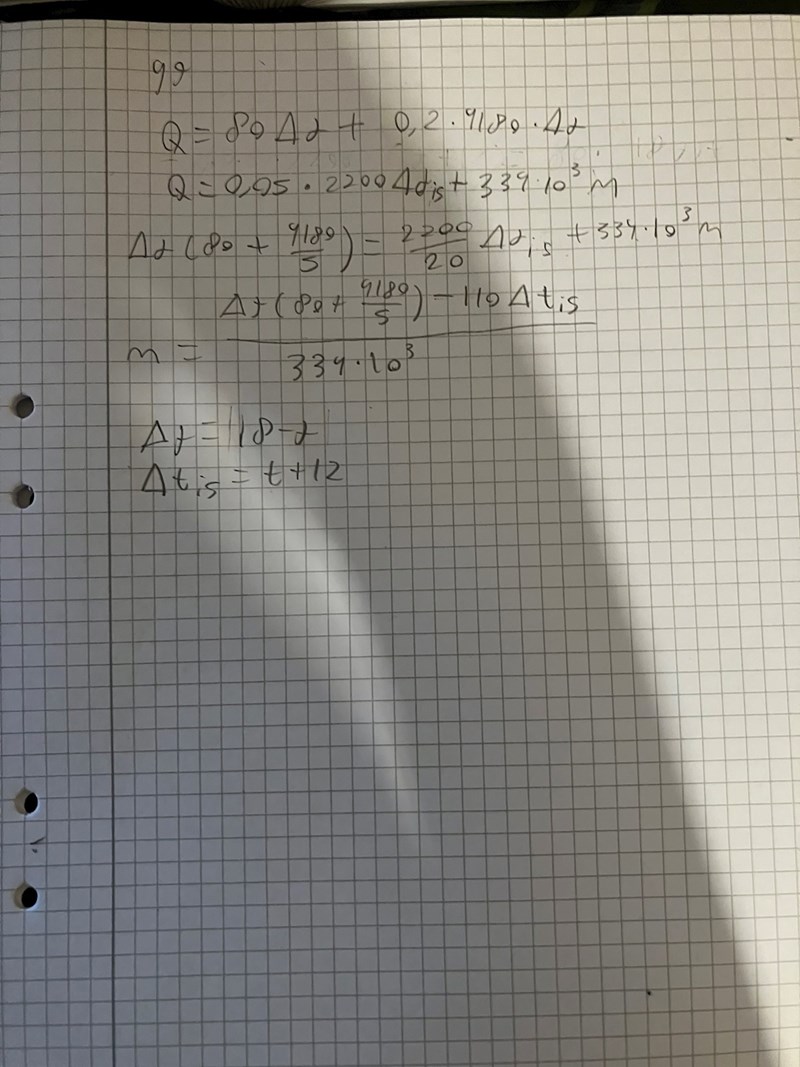 99
Q = 80 Δt + 0,2 · 4180 · Δt
Q = 0,05 · 2200 Δt_is + 334 · 10³ m
Δt (80 + 4180/5) = 2200/20 Δt_is + 334 · 10³ m
m = (Δt (80 + 4180/5) − 110 Δt_is) / (334 · 10³)
Δt = 18 − t
Δt_is = t + 12